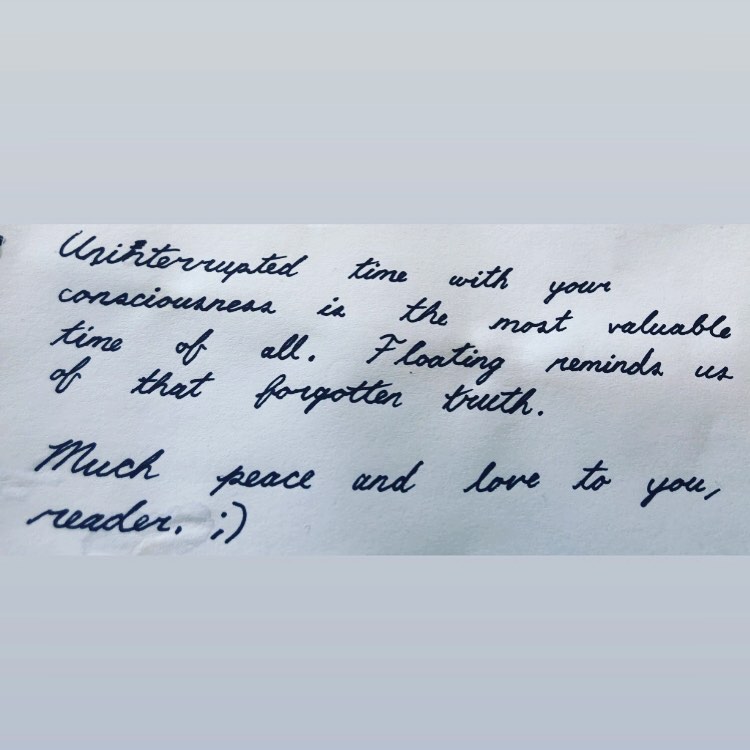 Uninterrupted time with your
consciousness is the most valuable
time of all. Floating reminds us
of that forgotten truth.
Much peace and love to you,
reader. ;)